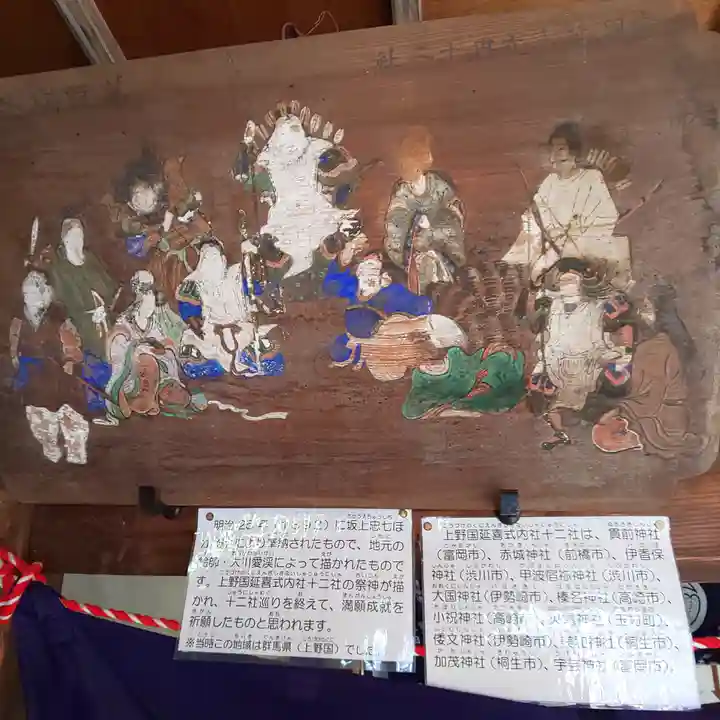 社
明治
に坂上忠七ほ
奉納されたもので、地元の
絵師・大川愛渓によって描かれたもので
す。上野国延喜式内社十二社の祭神が描
かれ、十二社巡りを終えて、満願成就を
祈願したものと思われます。
※当時この地域は群馬県(上野国)でした
上野国延喜式内社十二社は、貫前神社
(富岡市)、赤城神社(前橋市)、伊香保
神社(渋川市)、甲波宿祢神社(渋川市)、
大国神社(伊勢崎市)、榛名神社(高崎市)、
小祝神社(高崎市)、火雷神社(玉村町)、
倭文神社(伊勢崎市)、美和神社(桐生市)、
加茂神社(桐生市)、宇芸神社(富岡市)、